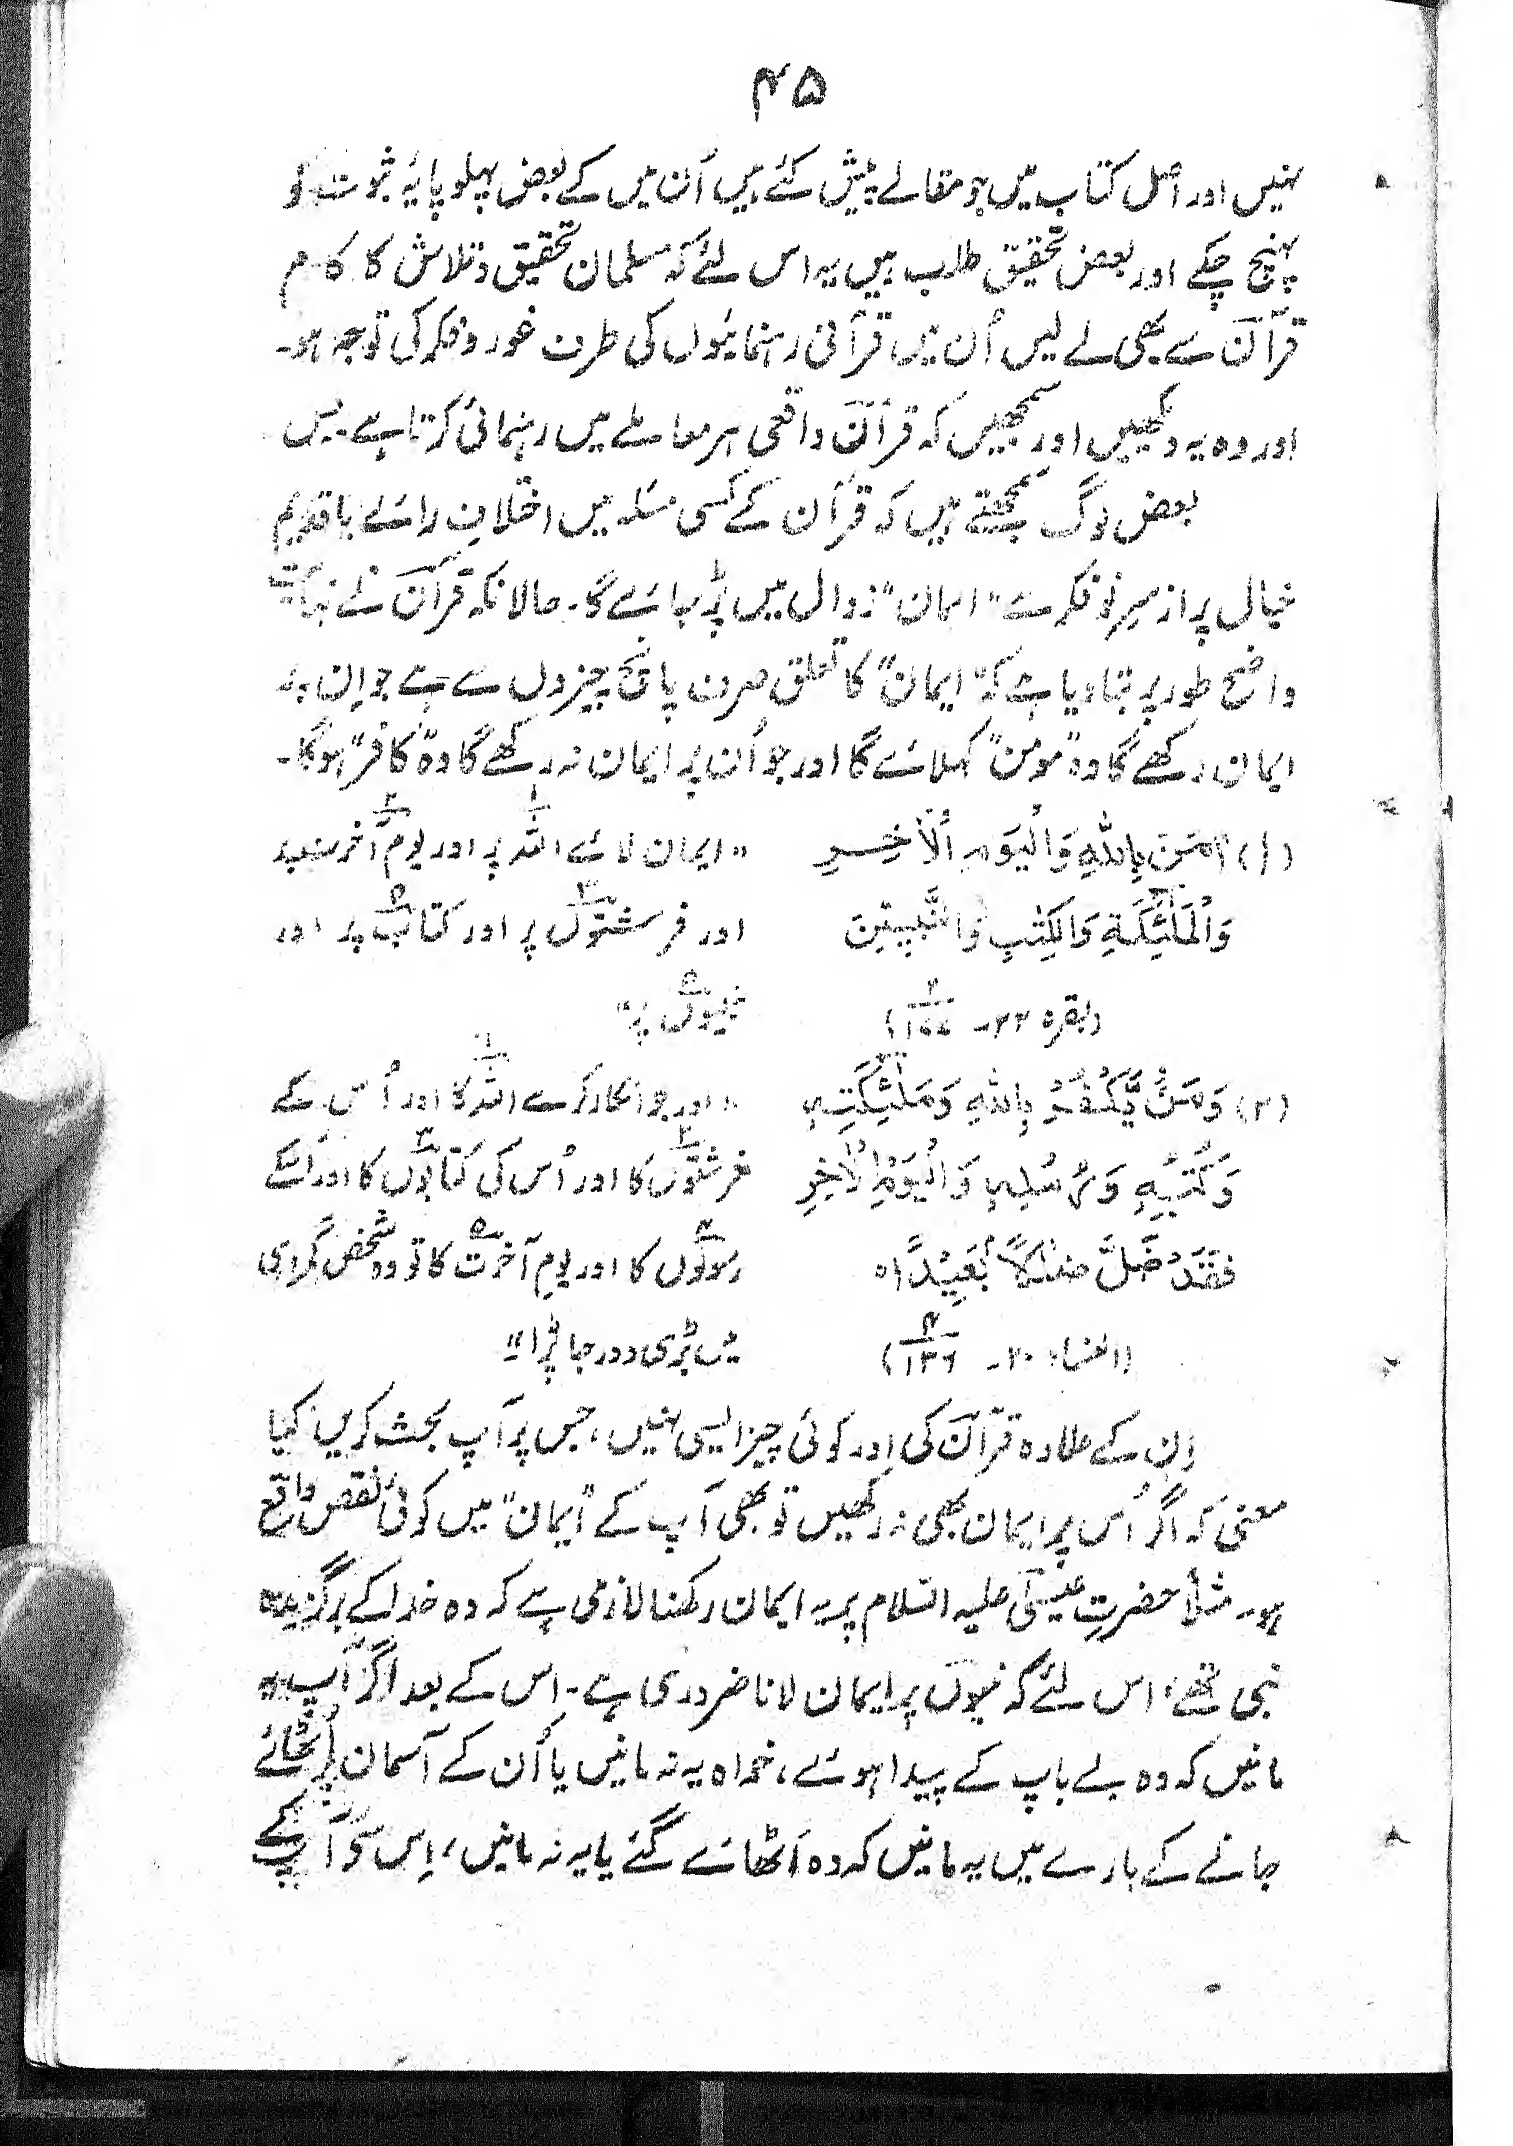 ۴۵
نہیں اور اصل کتاب میں جو مقالے پیش کئے ہیں اُن میں کے بعض پہلو پایۂ ثبوت کو
پہنچ چکے اور بعض تحقیق طلب ہیں یہ اس لئے کہ مسلمان تحقیق و تلاش کا کام
قرآن سے بھی لے لیں اُن میں قرآنی رہنمائیوں کی طرف غور و فکر کی توجہ ہو۔
اور وہ یہ دیکھیں اور سمجھیں کہ قرآن واقعی ہر معاملے میں رہنمائی کرتا ہے۔
بعض لوگ سمجھتے ہیں کہ قرآن کے کسی مسئلہ میں اختلافِ رائے یا قدیم
خیال پر از سرِ نو فکر سے "ایمان" زوال میں پڑ جائے گا۔ حالانکہ قرآن نے نہایت
واضح طور پر بتا دیا ہے کہ "ایمان" کا تعلق صرف پانچ چیزوں سے ہے جو اِن پر
ایمان رکھے گا وہ "مومن" کہلائے گا اور جو اُن پر ایمان نہ رکھے گا وہ "کافر" ہوگا۔
(۱) اٰمَنَ بِاللّٰهِ وَالْیَوْمِ الْاٰخِرِ "ایمان لائے اللہ۱ پر اور یومِ آخرت۲ پر
وَالْمَلٰٓئِكَةِ وَالْكِتٰبِ وَالنَّبِیّٖنَ اور فرشتوں۳ پر اور کتاب۴ پر اور
(بقرہ ۲۲۔ ۲/۱۷۷) نبیوں۵ پر"
(۲) وَمَنْ یَّكْفُرْ بِاللّٰهِ وَمَلٰٓئِكَتِهٖ "اور جو انکار کرے اللہ۱ کا اور اُس کے
وَكُتُبِهٖ وَرُسُلِهٖ وَالْیَوْمِ الْاٰخِرِ فرشتوں۲ کا اور اُس کی کتابوں۳ کا اور اسکے
فَقَدْ ضَلَّ ضَلٰلًاۢ بَعِیْدًا۝ رسولوں۴ کا اور یومِ آخرت۵ کا تو وہ شخص گمراہی
(النساء ۲۰۔ ۴/۱۳۶) میں بڑی دور جا پڑا"
اِن کے علاوہ قرآن کی اور کوئی چیز ایسی نہیں، جس پر آپ بحث کریں کیا
معنی کہ اگر اُس پر ایمان بھی نہ رکھیں تو بھی آپ کے "ایمان" میں کوئی نقص واقع
ہو۔ مثلاً حضرتِ عیسیٰ علیہ السّلام پر یہ ایمان رکھنا لازمی ہے کہ وہ خدا کے برگزیدہ
نبی تھے، اس لئے کہ نبیوں پر ایمان لانا ضروری ہے۔ اِس کے بعد اگر آپ یہ
مانیں کہ وہ بے باپ کے پیدا ہوئے، خواہ یہ نہ مانیں یا اُن کے آسمان پر اُٹھائے
جانے کے بارے میں یہ مانیں کہ وہ اُٹھائے گئے یا یہ نہ مانیں، اِس سے آپ کے